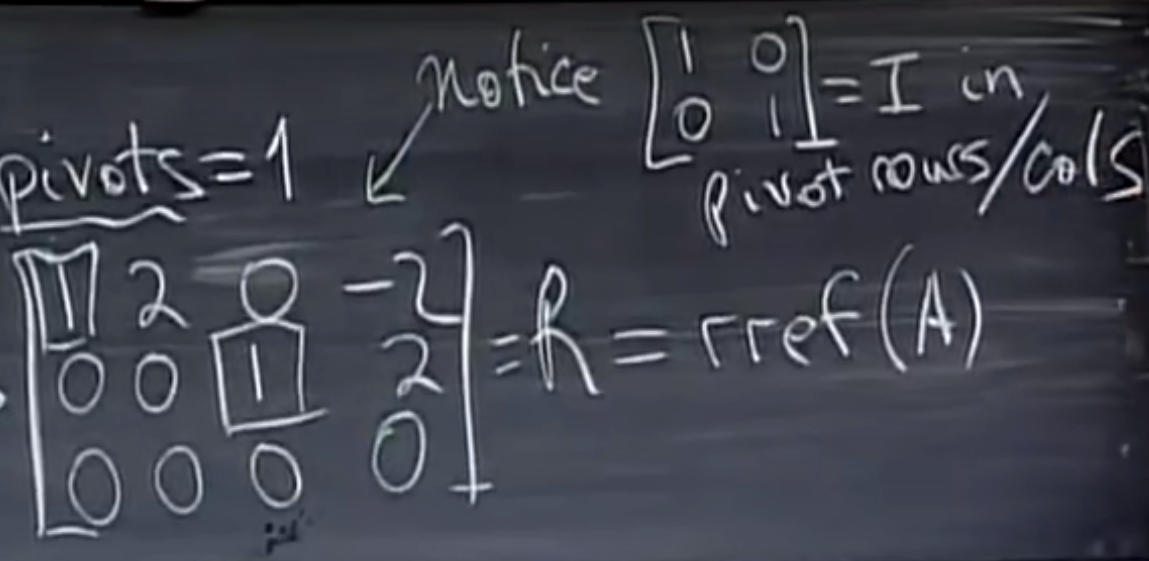 notice [1 0
0 1] = I in
pivot rows/cols
pivots = 1
[1 2 0 -2
0 0 1 2
0 0 0 0] = R = rref(A)